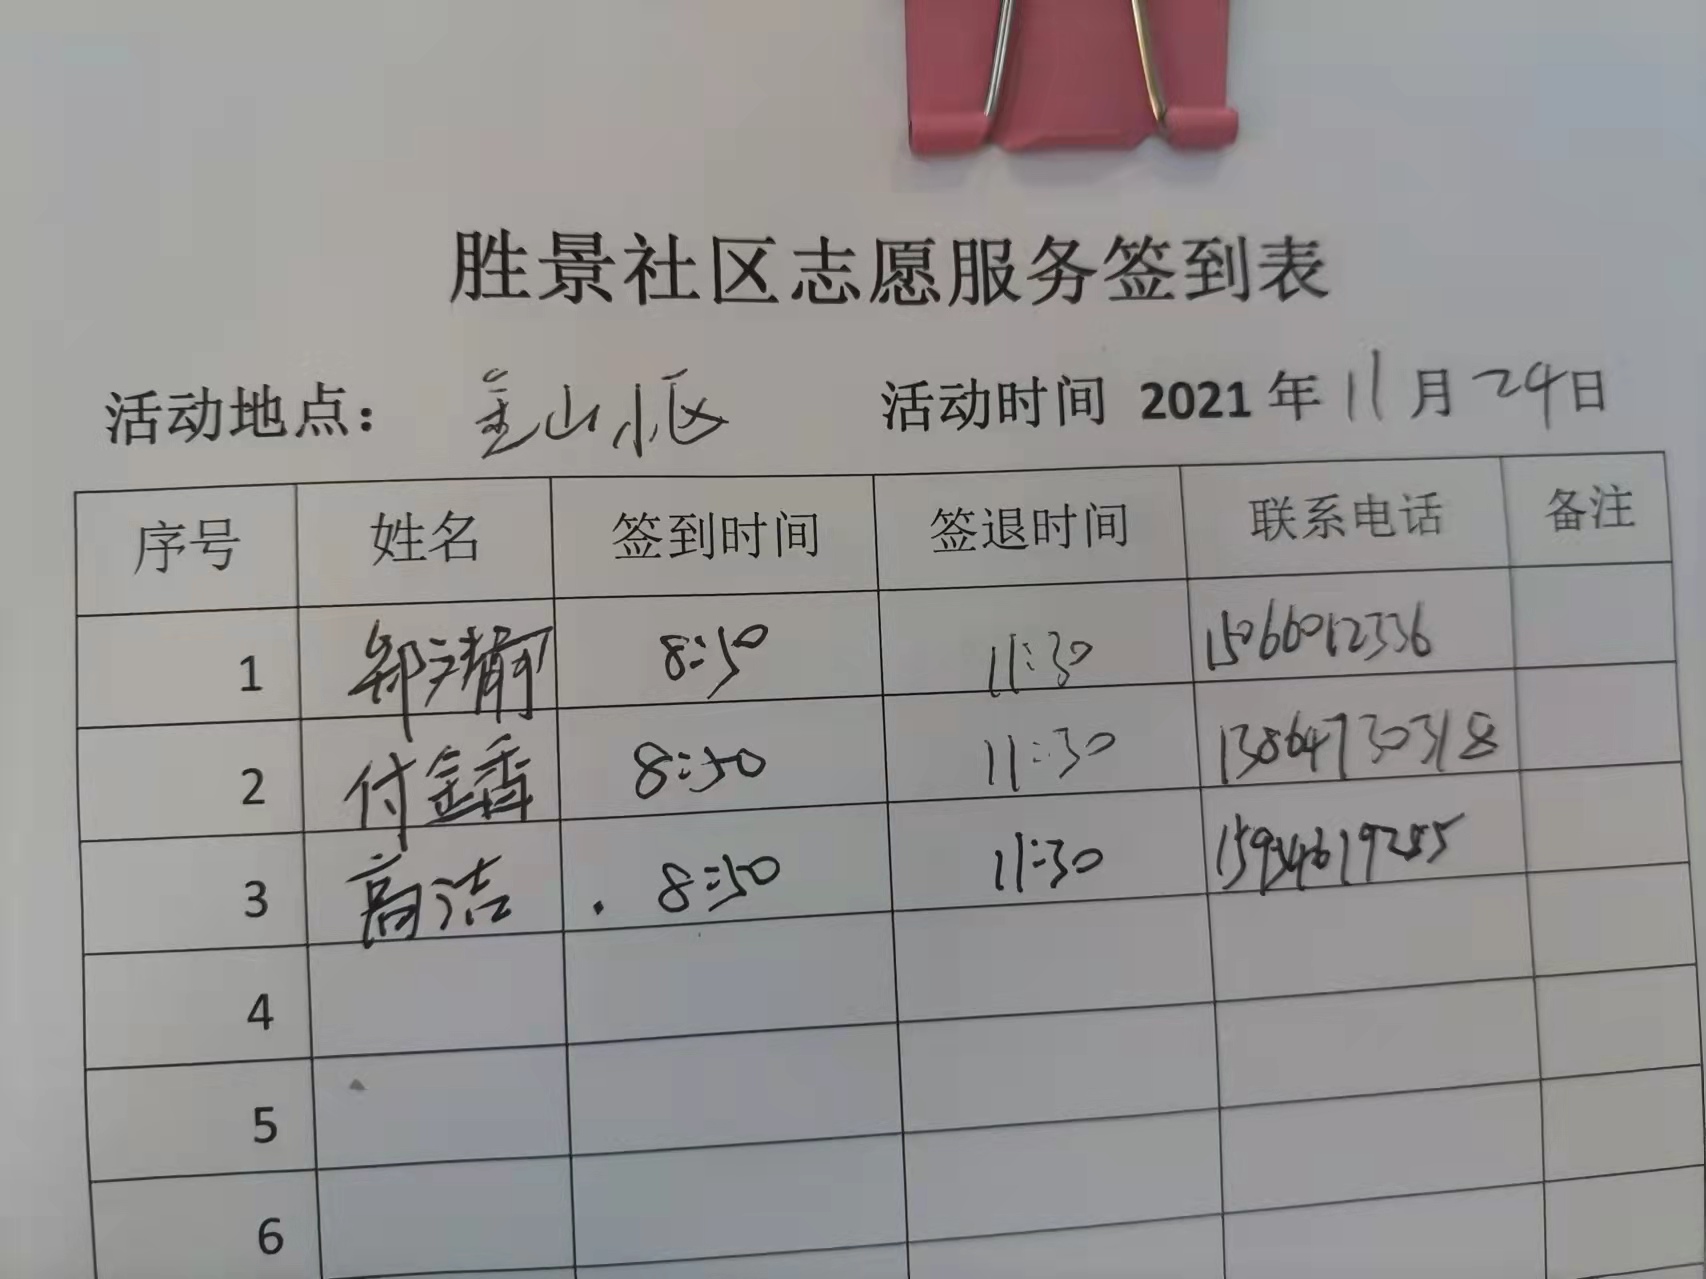 胜景社区志愿服务签到表
活动地点： 金山小区 活动时间 2021 年 11 月 24 日
序号 姓名 签到时间 签退时间 联系电话 备注
1 郑 8:50 11:30 15066012336
2 付金香 8:50 11:30 13864730318
3 高洁 8:50 11:30
4
5
6